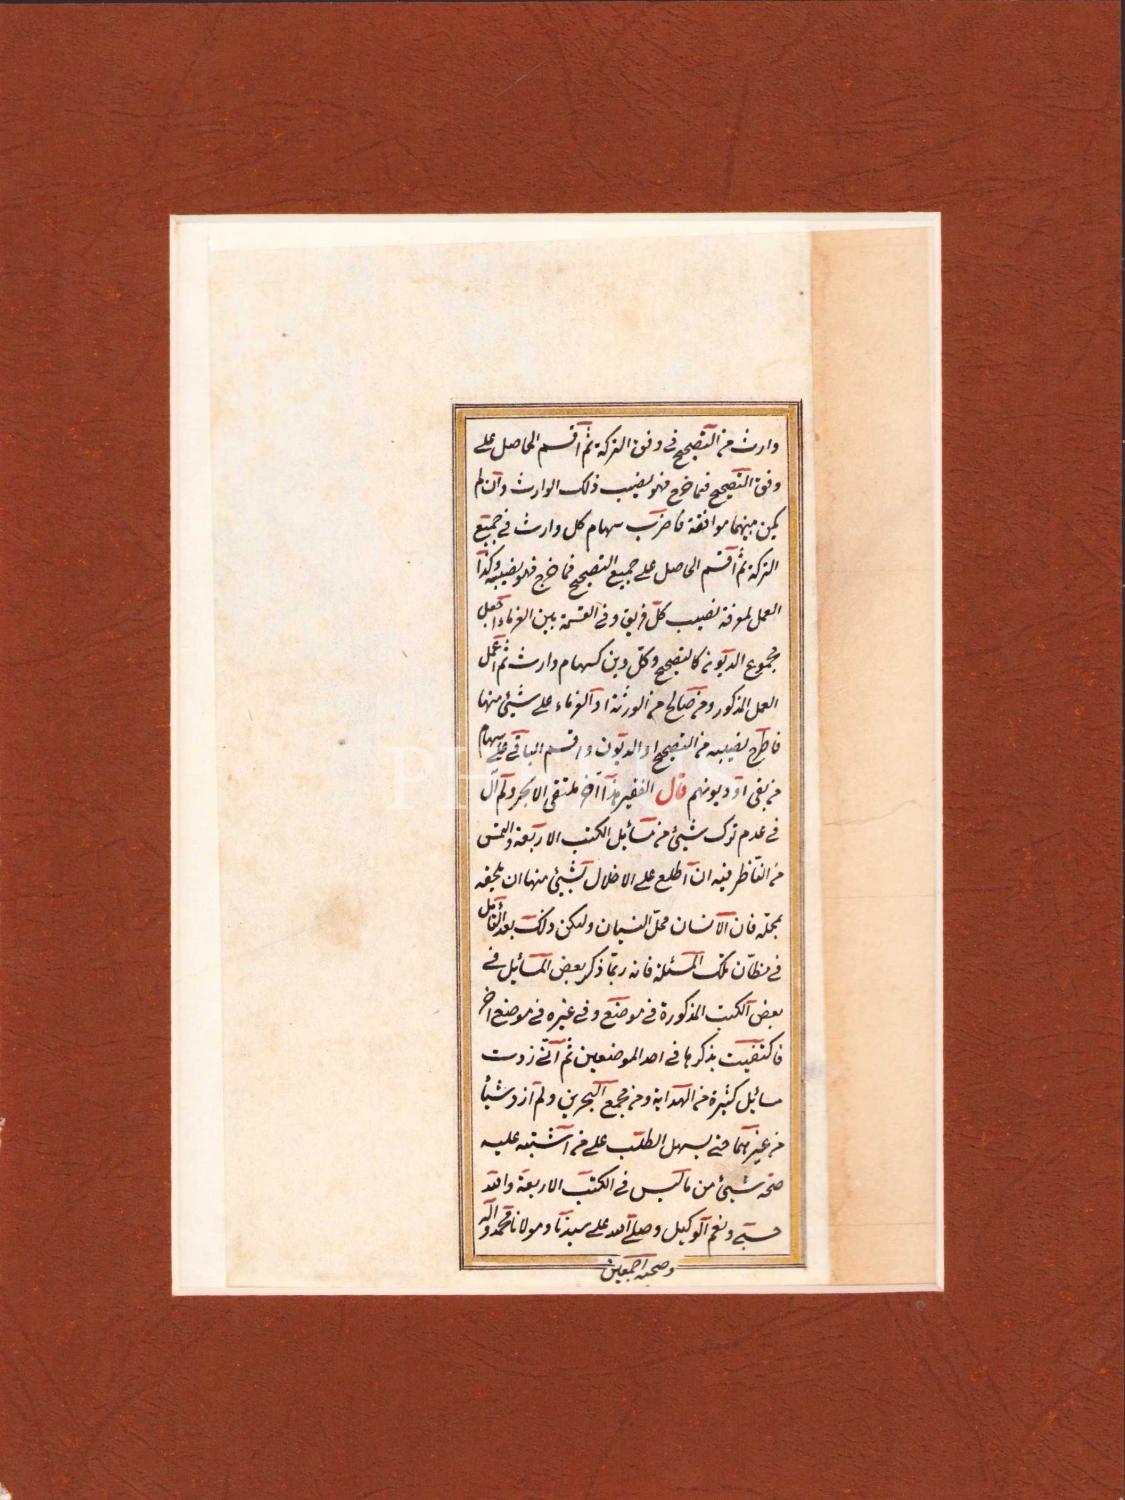 وارث من التصحيح في وفق التركة ثم اقسم الحاصل على
وفق التصحيح فما خرج فهو نصيب ذلك الوارث وان لم
يكن بينهما موافقة فاضرب سهام كل وارث في جميع
التركة ثم اقسم الحاصل على جميع التصحيح فما خرج فهو نصيبه وكذا
العمل لمعرفة نصيب كل فريق وفي القسمة بين الغرماء اجعل
مجموع الديون كالتصحيح وكل دين كسهام وارث ثم اعمل
العمل المذكور ومن صالح من الورثة او الغرماء على شيئ منها
فاطرح نصيبه من التصحيح او الديون واقسم الباقي على سهام
من بقي او ديونهم قال الفقير هذا آخر ملتقى الابحر ولم آل
في عدم ترك شيئ من مسائل الكتب الاربعة والتمس
من الناظر فيه ان اطلع على الاخلال بشيئ منها ان يلحقه
بمحله فان الانسان محل النسيان وليكن ذلك بعد التأمل
في مظان تلك المسئلة فانه ربما ذكر بعض المسائل في
بعض الكتب المذكورة في موضع وفي غيره في موضع آخر
فاكتفيت بذكرها في احد الموضعين ثم اني زدت
مسائل كثيرة من الهداية ومن مجمع البحرين ولم ازد شيأ
من غيرهما حتى يسهل الطلب على من اشتبه عليه
صحة شيئ من ما ليس في الكتب الاربعة والله
حسبي ونعم الوكيل وصلى الله على سيدنا ومولانا محمد وآله
وصحبه اجمعين